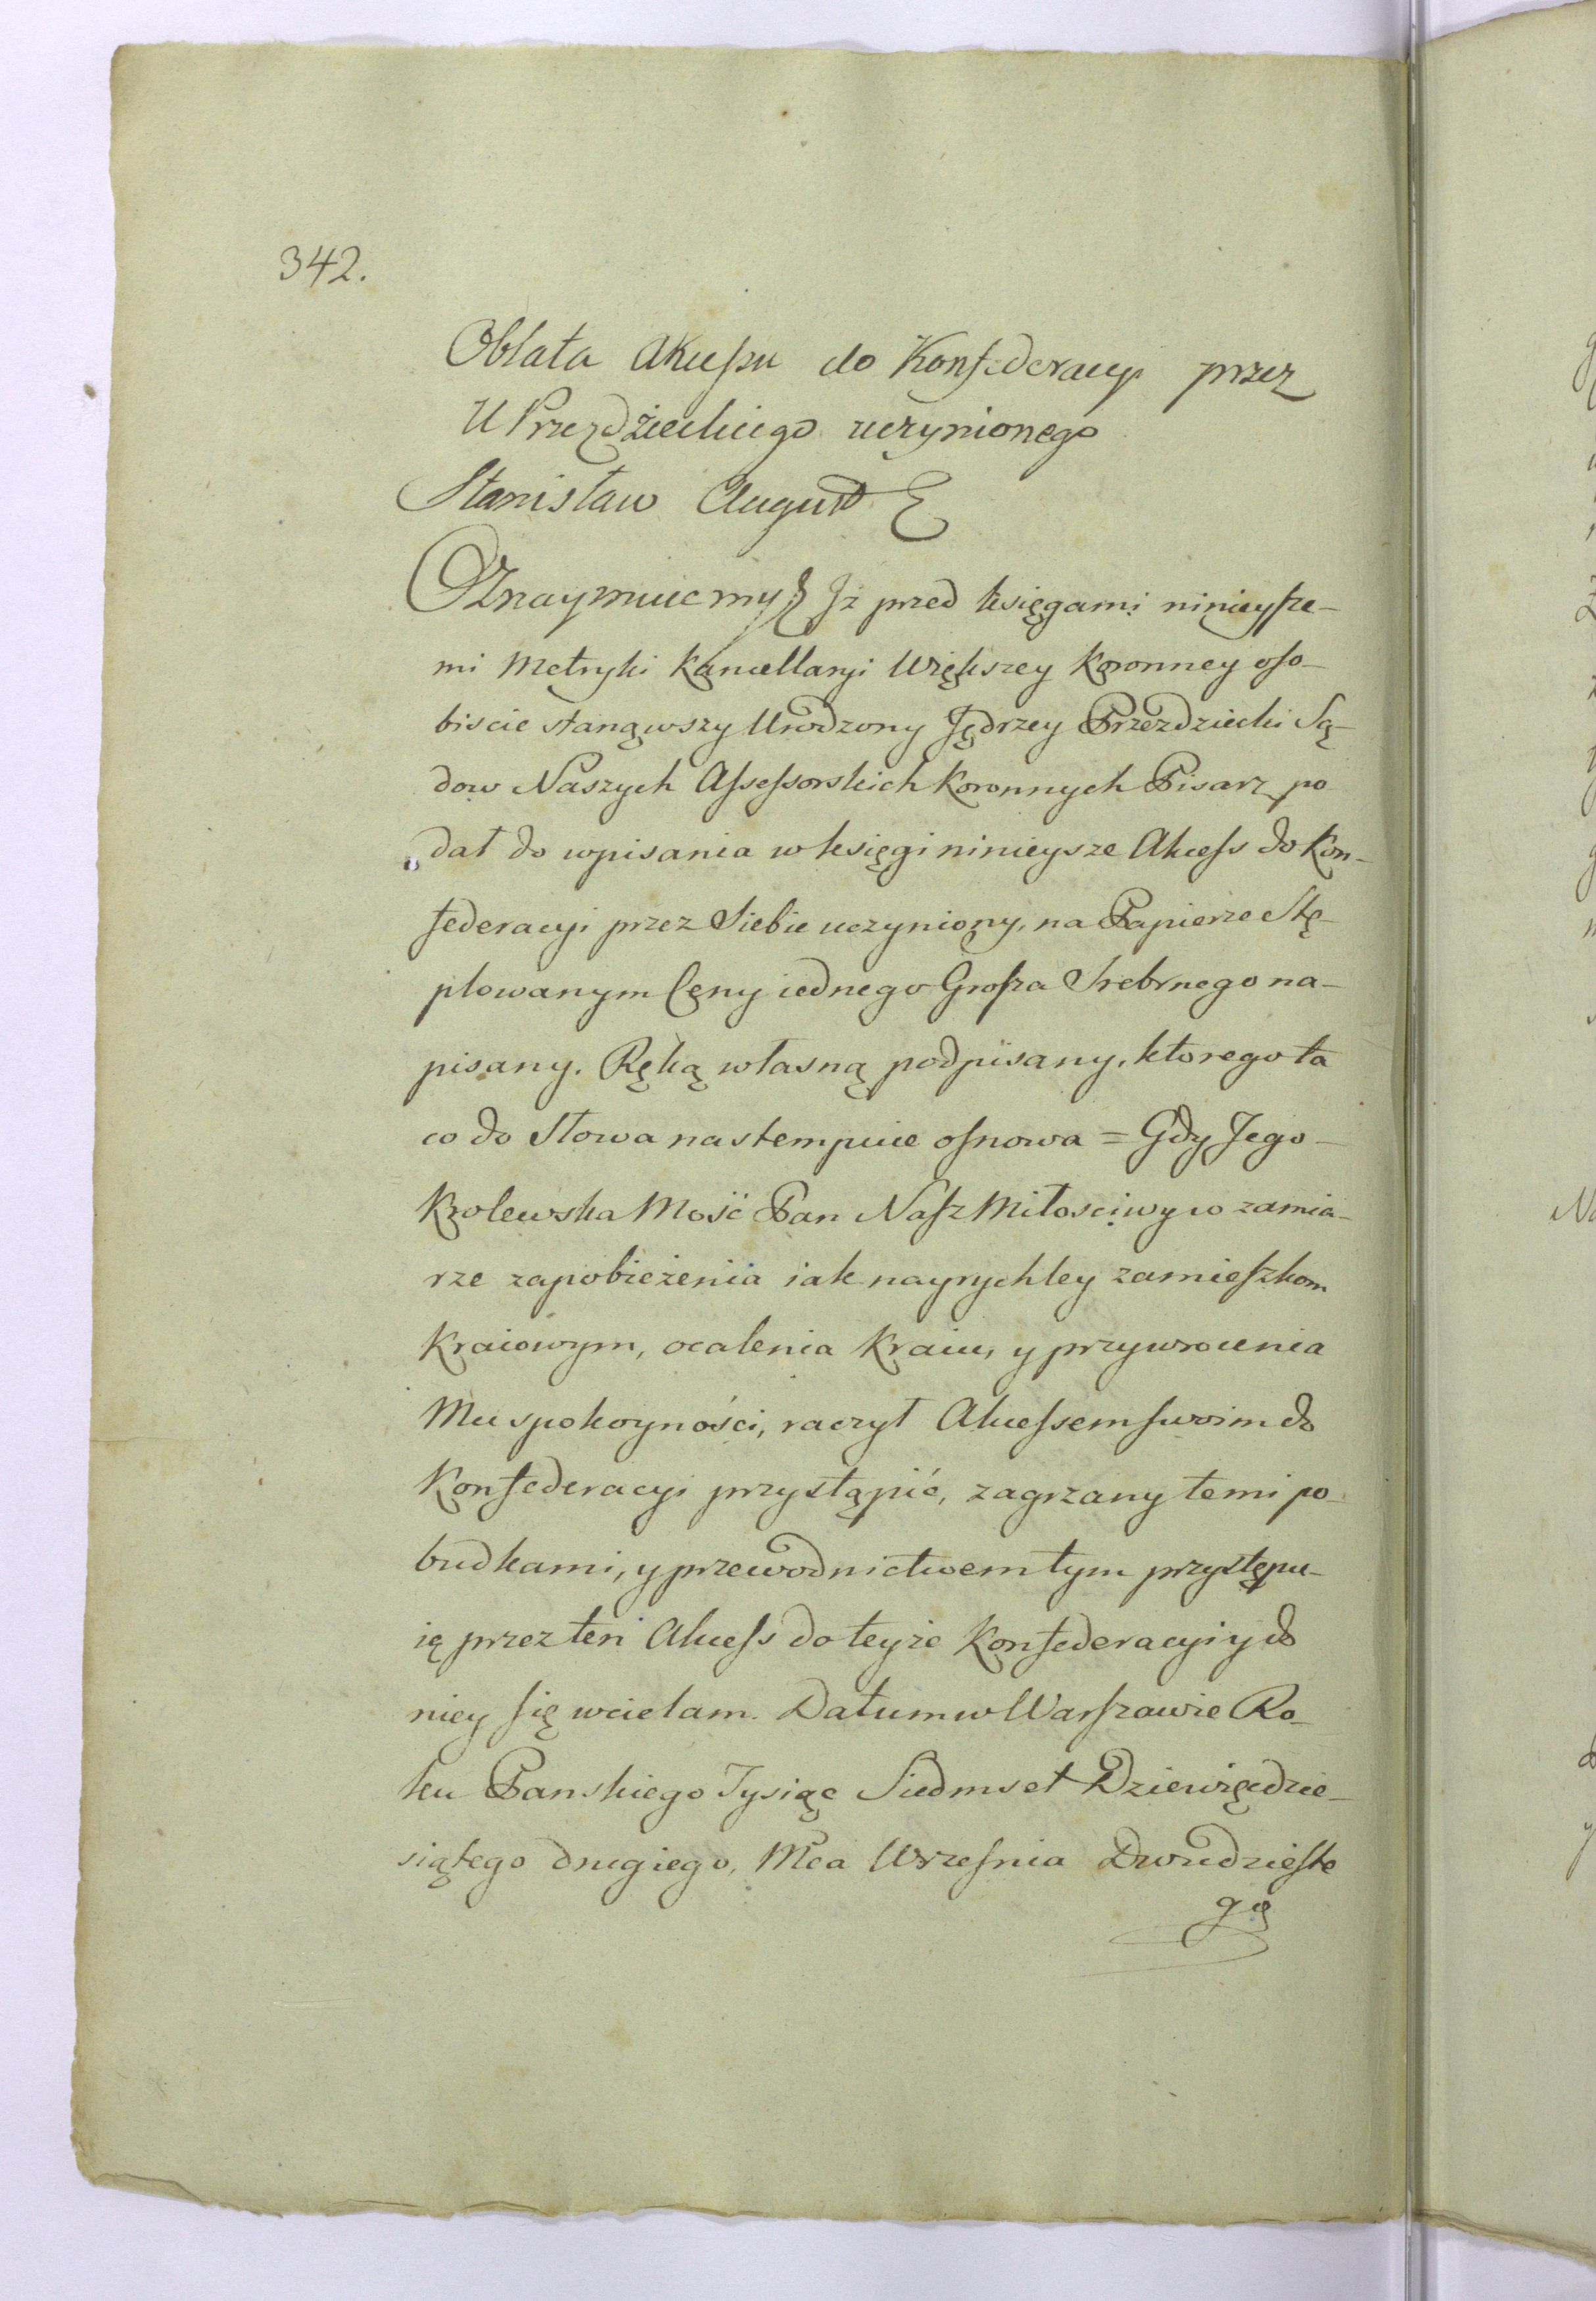 342.
Oblata Akcessu do Konfederacyi przez
U Przezdzieckiego uczynionego
Stanisław August
Oznaymuiemy Iż przed księgami ninieysze-
mi Metryki Kancellaryi Większey Koronney oso-
biscie stanąwszy Urodzony Jędrzey Przezdziecki Są-
dow Naszych Assessorskich Koronnych Pisarz po
dał do wpisania w księgi ninieysze Akcess do Kon-
federacyi przez Siebie uczyniony, na Papierze Stę-
plowanym Ceny iednego Grosza Srebrnego na-
pisany. Ręką własną podpisany, ktorego ta
co do Słowa nastempuie osnowa = Gdy Jego-
Krolewska Mość Pan Nasz Miłosciwy w zamia-
rze zapobieżenia iak nayrychley zamieszkom
Kraiowym, ocalenia Kraiu, y przywrocenia
Mu spokoyności, raczył Akcessem swoim do
Konfederacyi przystąpić, zagrzany temi po-
budkami, y przewodnictwem tym przystępu-
ię przez ten Akcess do teyże Konfederacyi y do
niey się wcielam. Datum w Warszawie Ro-
ku Panskiego Tysiąc Siedmset Dziewięcdzie-
siątego drugiego, Mca Wrzesnia Dwudzieste
go